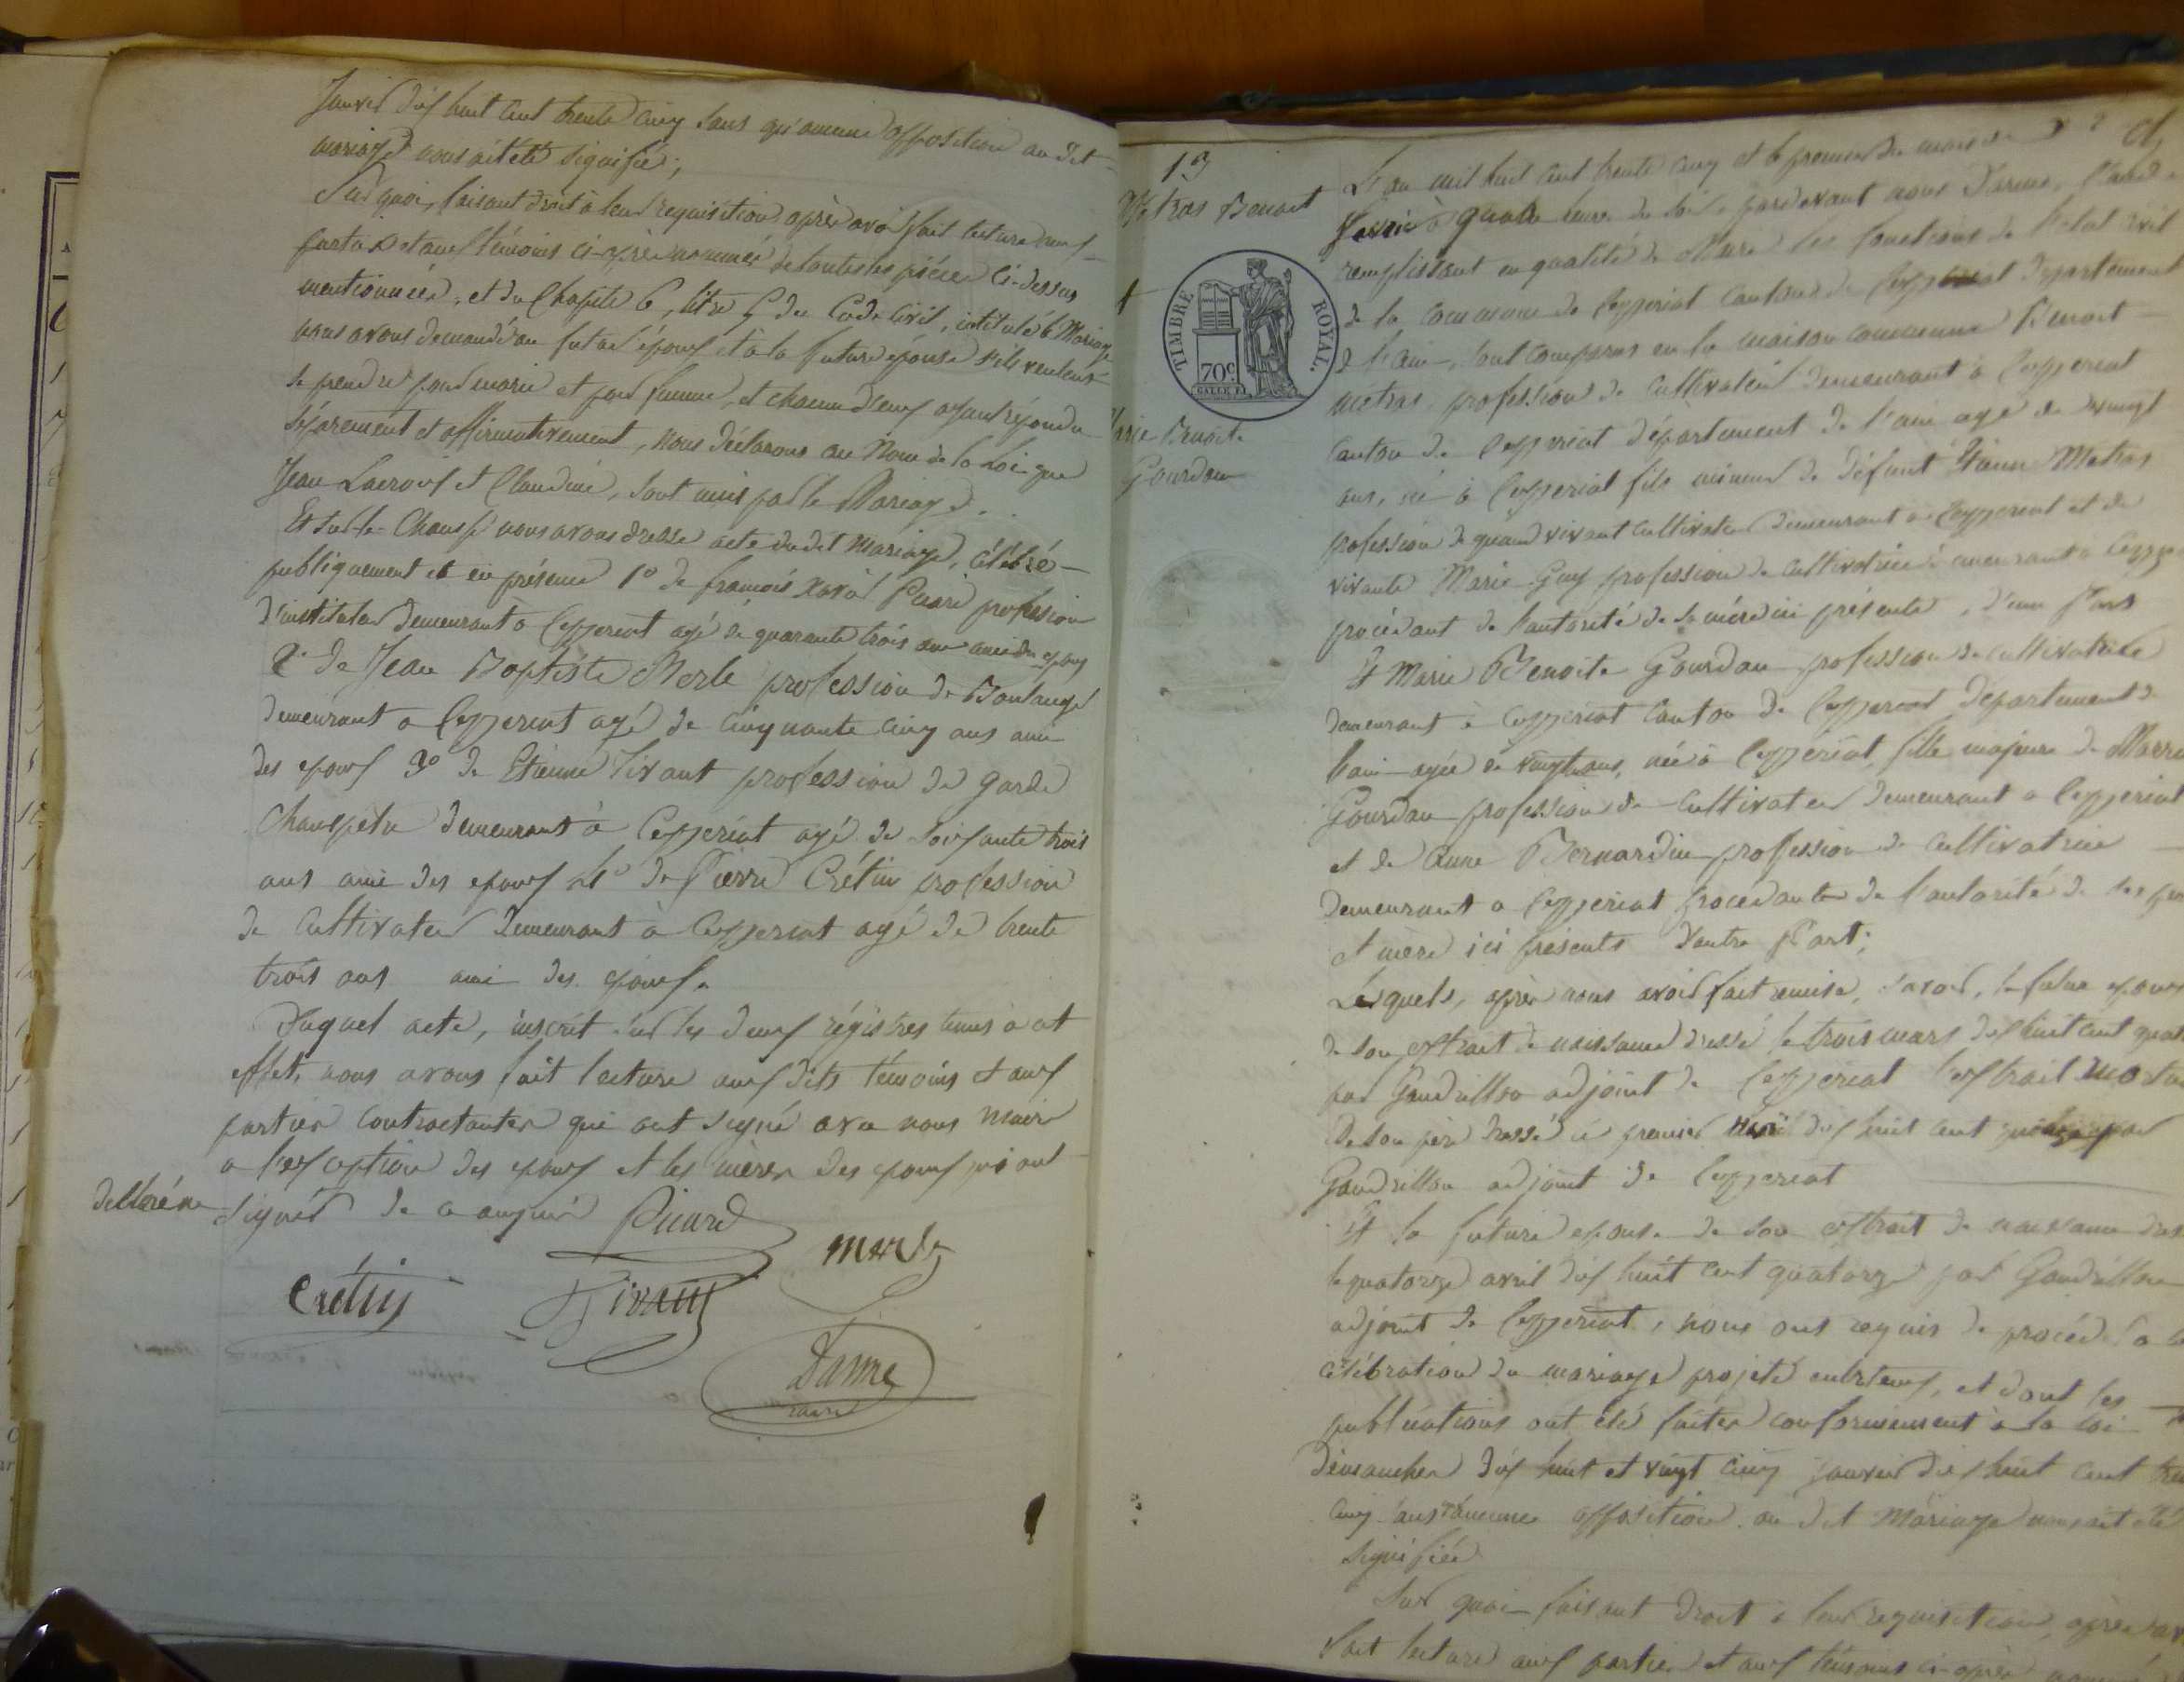 Janvier dix huit cent trente cinq sans qu'aucune opposition au dit
mariage nous ait été signifié;
Sur quoi, faisant droit à leur requisition, après avoir fait lecture aux
parties et aux témoins ci-après nommés de toutes les pièces ci-dessus
mentionnées, et du Chapitre 6, titre 5 du Code Civil, intitulé le Mariage
nous avons demandé au futur époux et à la future épouse s'ils veulent
se prendre pour marie et pour femme, et chacun d'eux ayant répondu
séparément et affirmativement, nous déclarons au Nom de la Loi que
Jean Lacroix et Claudine, sont unis par le Mariage.
Et sur le Champ nous avons dressé acte du dit Mariage, célébré
publiquement et en présence 1º de françois Xavier Picard profession
d'instituteur demeurant à Ceyzeriat agé de quarante trois ans ami des epoux
2º de Jean Baptiste Merle profession de Boulanger
demeurant a Ceyzeriat agé de cinquante cinq ans ami
des epoux 3º de Etienne Tivant profession de garde
Champetre demeurant à Ceyzeriat agé de soixante trois
ans ami des epoux 4º de Pierre Crétin profession
de Cultivateur demeurant à Ceyzeriat agé de trente
trois ans ami des epoux.
Duquel acte, inscrit sur les deux régistres tenus à cet
effet, nous avons fait lecture aux dits témoins et aux
parties contractantes qui ont signé avec nous maire
a l'exception des epoux et les mères des epoux qui ont
signer de ce enquis
Picard
Merle
Crétin
Tivant
Darme
maire
13
Metras Benoit
et
TIMBRE ROYAL.
70c
Marie Benoite
Gourdan
L'an mil huit cent trente cinq et le premier du mois de
fevrier à quatre heures du soir pardevant nous Darme,
remplissant en qualité de Maire les fonctions de l'etat civil
de la commune de Ceyzeriat Canton de Ceyzeriat département
de l'ain, sont comparus en la maison commune Benoit
Metras profession de Cultivateur demeurant à Ceyzeriat
Canton de Ceyzeriat département de l'ain agé de vingt
ans, né à Ceyzeriat fils mineur de défunt Etienne Metras
profession de quand vivant Cultivateur demeurant à Ceyzeriat et de
vivante Marie Guy profession de cultivatrice demeurant à
procédant de l'autorité de sa mère ici présente, d'une Part
Et Marie Benoite Gourdan profession de cultivatrice
demeurant à Ceyzeriat Canton de Ceyzeriat Département de
l'ain agée de vingt ans, née à Ceyzeriat, fille majeure de
Gourdan profession de Cultivateur demeurant a Ceyzeriat
et de Anne Bernardin profession de Cultivatrice
demeurant a Ceyzeriat procédante de l'autorité de ses
et mère ici présents d'autre Part;
Lesquels, après nous avoir fait remise, savoir, le futur epoux
de son extrait de naissance dressé le trois mars dix huit cent
par Gaudillon adjoint de Ceyzeriat l'extrait
de son père dressé ce premier dix huit cent
Gaudillon adjoint de Ceyzeriat
Et la future epouse de son extrait de naissance
le quatorze avril dix huit cent quatorze par Gaudillon
adjoint de Ceyzeriat, nous ont requis de procéder a la
célébration du mariage projeté entr'eux, et dont les
publications ont été faites conformement à la loi
dimanches dix huit et vingt cinq janvier dix huit cent
cinq sans qu'aucune opposition au dit Mariage nous ait été
signifiée
Sur quoi faisant Droit à leur requisition, après
fait lecture aux parties et aux témoins ci-après